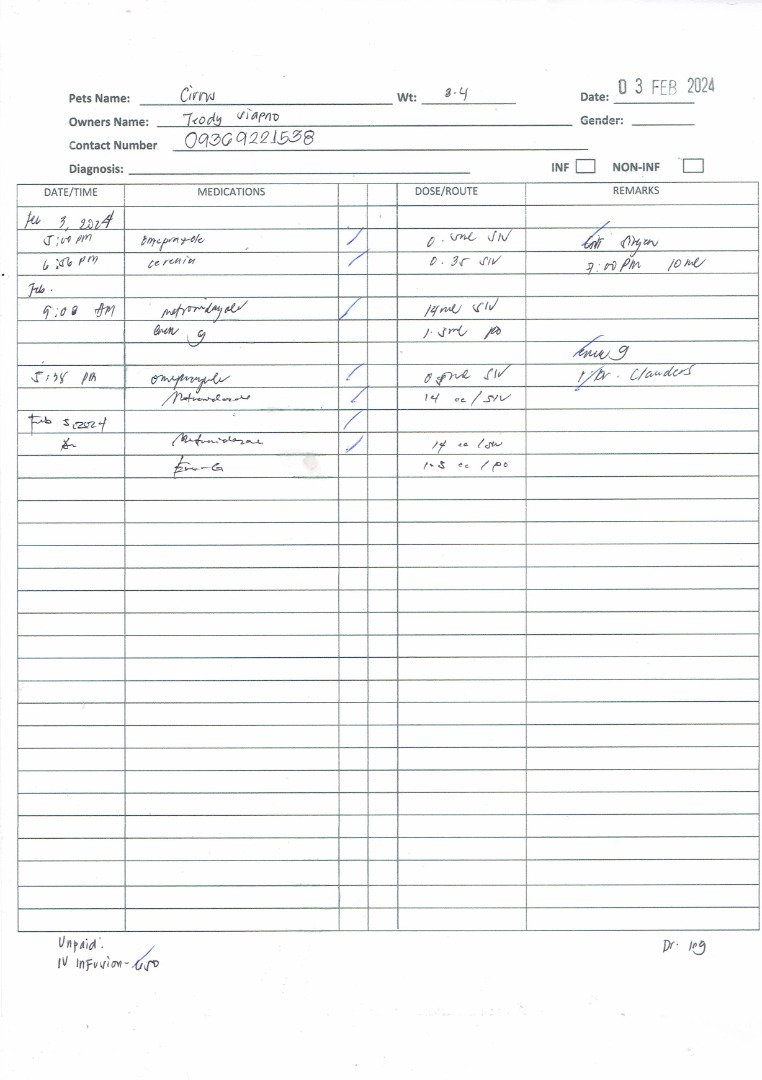 03 FEB 2024
Pets Name: Cirrus Wt: 3.4 Date:
Owners Name: Teody Viapno Gender:
Contact Number 09369221538
Diagnosis: INF NON-INF
DATE/TIME MEDICATIONS DOSE/ROUTE REMARKS
Feb 3, 2024
5:00 PM omeprazole 0. ml SIV
6:56 PM cerenia 0.35 SIV 7:00 PM 10 ml
Feb.
9:00 AM metronidazole 14ml SIV
g 1.5ml po
g
5:38 PM omeprazole SIV Dr. Clauders
Metronidazole 14 cc / SIV
Feb 5, 2024
Metronidazole 14 cc / SIV
-G 1.5 cc / po
Unpaid: Dr. Ing
IV Infusion - 650